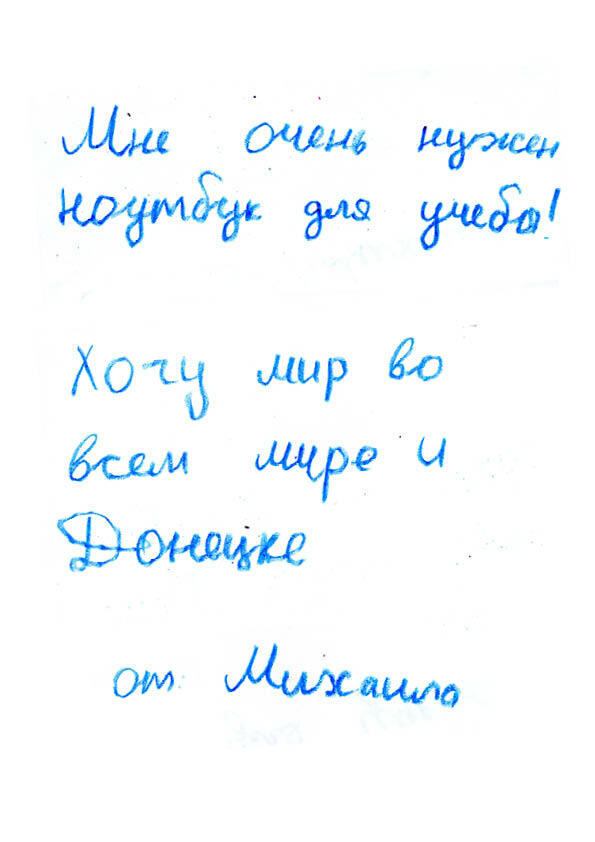 Мне очень нужен
ноутбук для учебы!
Хочу мир во
всем мире и
Донецке
от Михаила